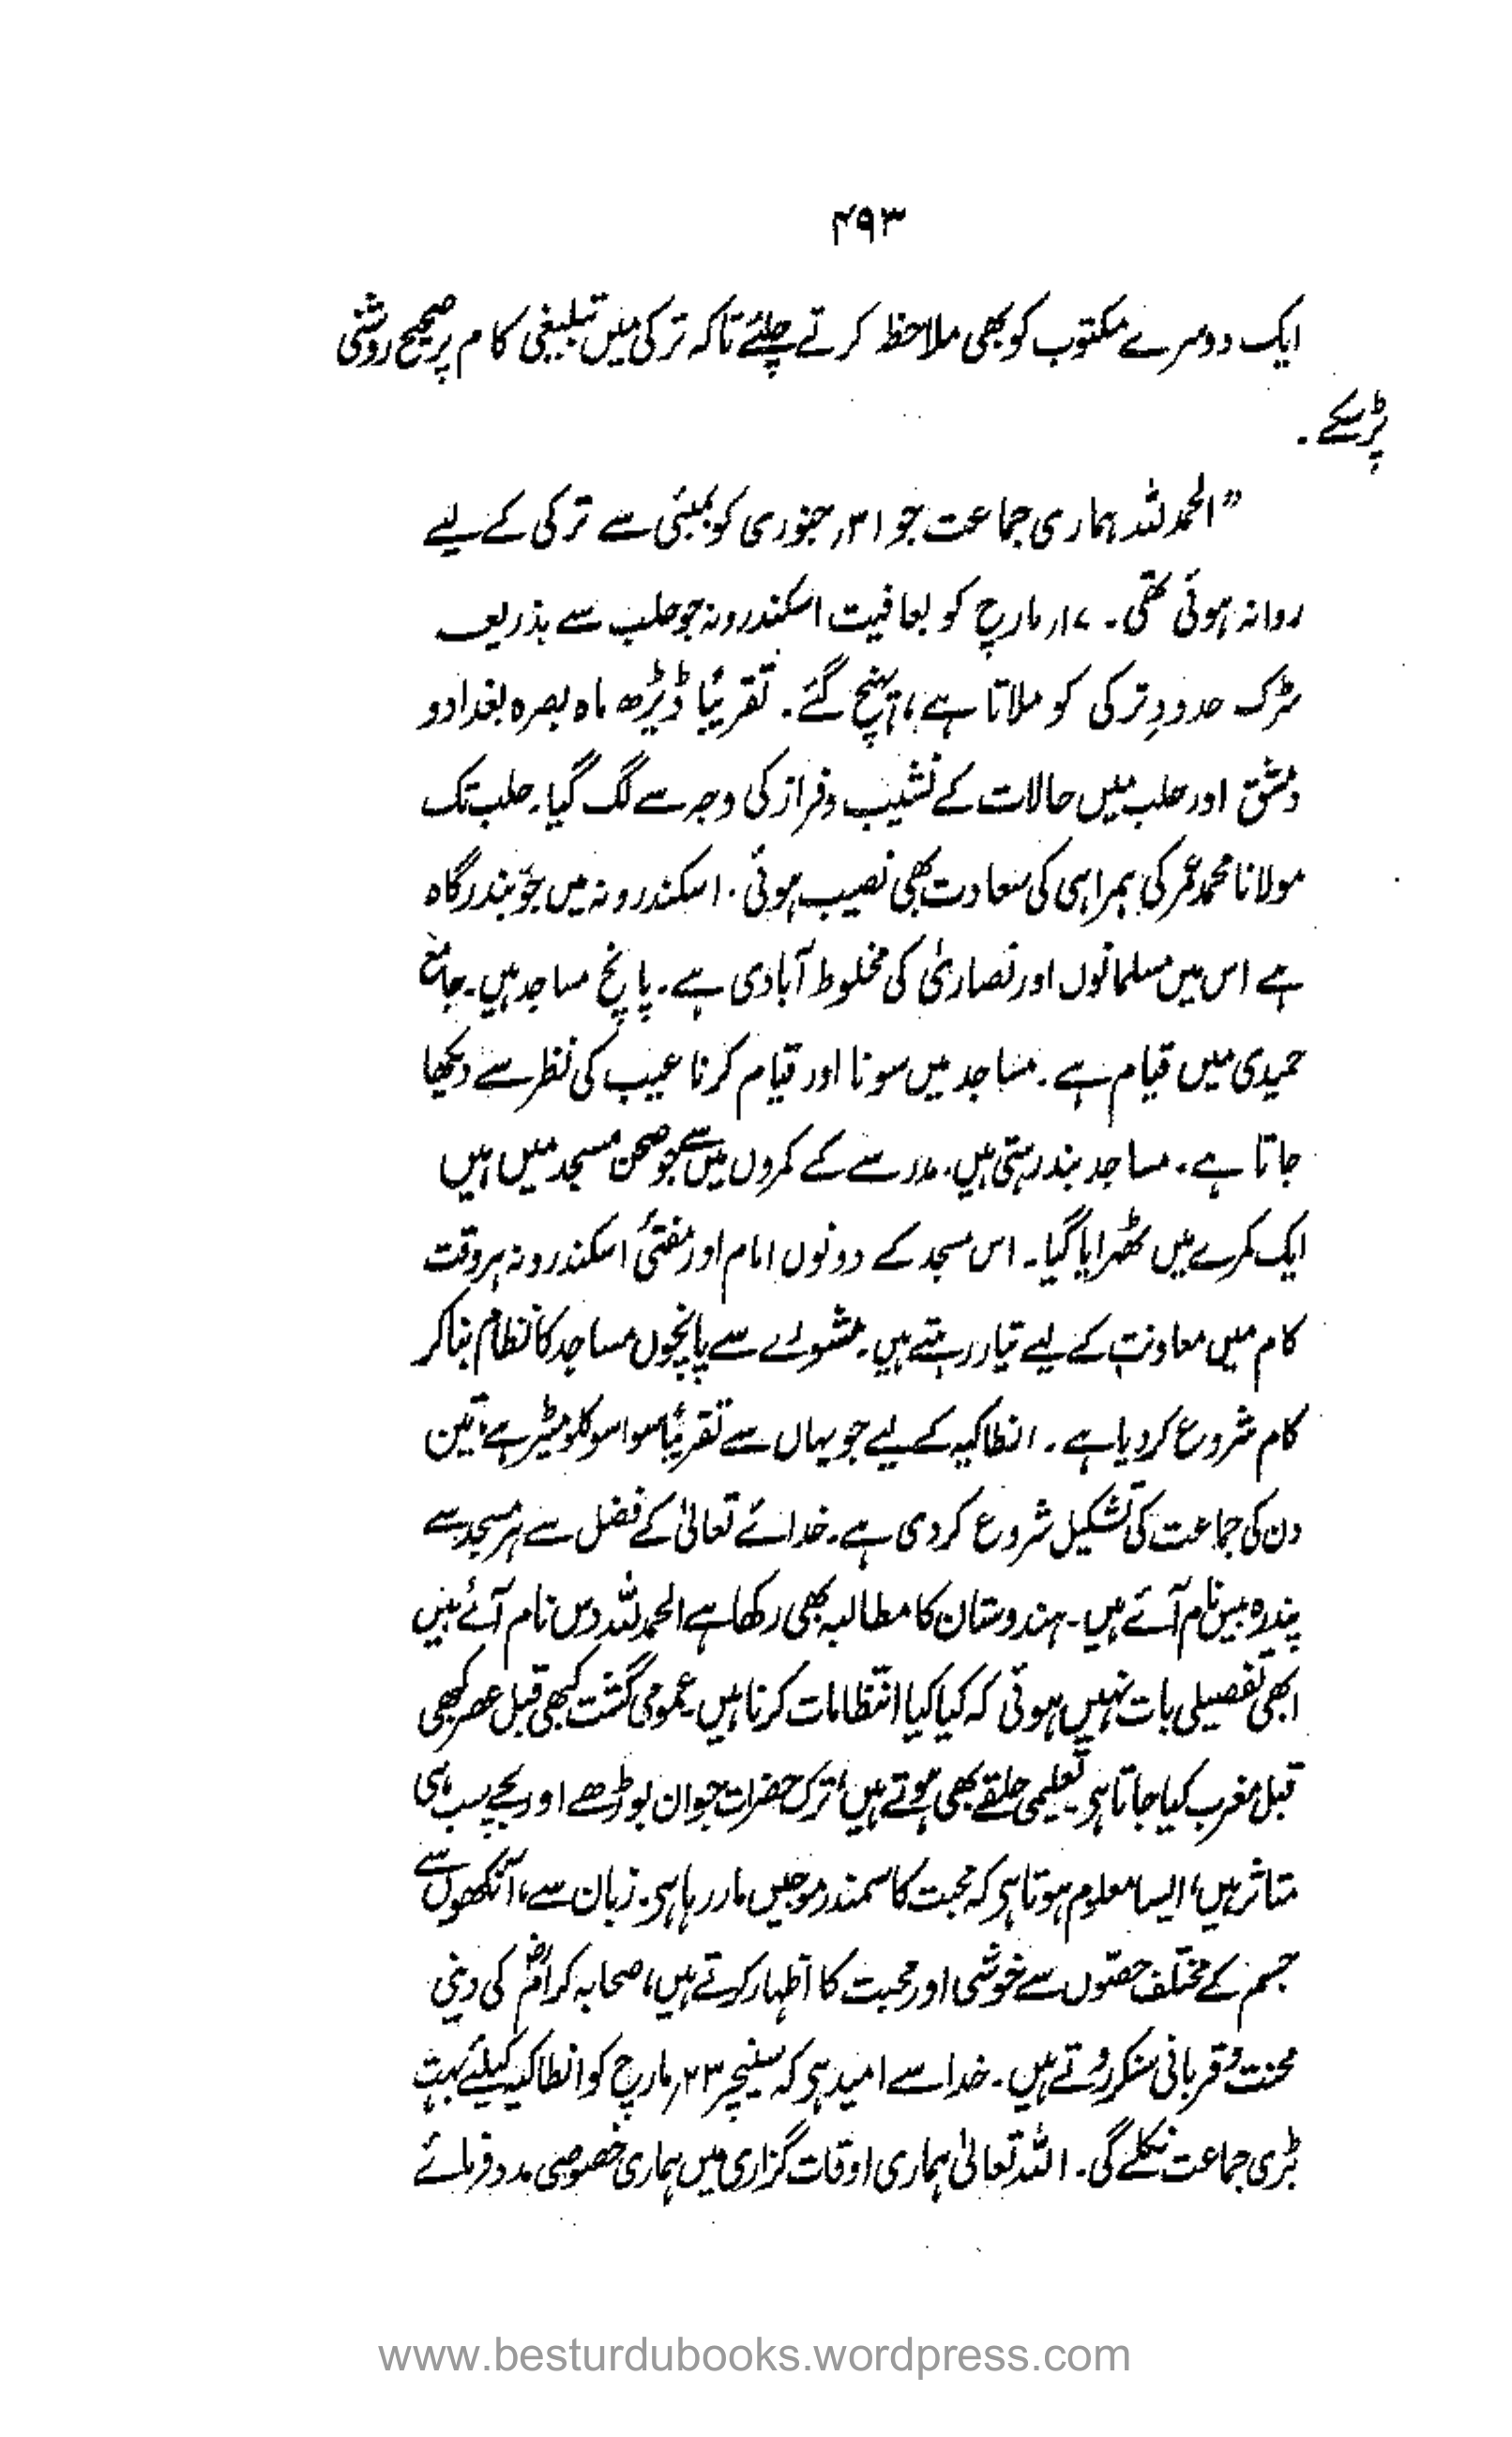 ۴۹۳
ایک دوسرے مکتوب کو بھی ملاحظہ کرتے چلئے تاکہ ترکی میں تبلیغی کام پر صحیح روشنی
پڑسکے ۔
”الحمدللہ ہماری جماعت جو ۳۱؍ جنوری کو بمبئی سے ترکی کے لیے
روانہ ہوئی تھی ۔ ۱۷؍ مارچ کو بعافیت اسکندرونہ جو حلب سے بذریعہ
سڑک حدودِ ترکی کو ملاتا ہے، پہنچ گئے ۔ تقریباً ڈیڑھ ماہ بصرہ بغداد و
دمشق اور حلب میں حالات کے نشیب وفراز کی وجہ سے لگ گیا ۔ حلب تک
مولانا محمد عمر کی ہمراہی کی سعادت بھی نصیب ہوئی ۔ اسکندرونہ میں جو بندرگاہ
ہے اس میں مسلمانوں اور نصاریٰ کی مخلوط آبادی ہے ۔ پانچ مساجد ہیں ۔ جامع
حمیدی میں قیام ہے ۔ مساجد میں سونا اور قیام کرنا عیب کی نظر سے دیکھا
جاتا ہے ۔ مساجد بند رہتی ہیں ۔ مدرسے کے کمروں میں سے جو صحن مسجد میں ہیں
ایک کمرے میں ٹھہرایا گیا ۔ اس مسجد کے دونوں امام اور مفتیٔ اسکندرونہ ہر وقت
کام میں معاونت کے لیے تیار رہتے ہیں ۔ مشورے سے پانچوں مساجد کا نظام بناکر
کام شروع کردیا ہے ۔ انطاکیہ کے لیے جو یہاں سے تقریباً سوا سو کلومیٹر ہے، تین
دن کی جماعت کی تشکیل شروع کردی ہے ۔ خدائے تعالیٰ کے فضل سے ہر مسجد سے
پندرہ بیس نام آئے ہیں ۔ ہندوستان کا مطالبہ بھی رکھا ہے الحمدللہ دس نام آئے ہیں
ابھی تفصیلی بات نہیں ہوئی کہ کیا کیا انتظامات کرنا ہیں ۔ عمومی گشت کبھی قبل عصر کبھی
قبل مغرب کیا جاتا ہی تعلیمی حلقے بھی ہوتے ہیں، ترک حضرات جوان بوڑھے اور بچے سب ہی
متاثر ہیں، ایسا معلوم ہوتا ہی کہ محبت کا سمندر موجیں مار رہا ہی ۔ زبان سے، آنکھوں سے
جسم کے مختلف حصّوں سے خوشی اور محبت کا اظہار کرتے ہیں، صحابہ کرامؓ کی دینی
محنت وقربانی سنکر روتے ہیں ۔ خدا سے امید ہی کہ سنیچر ۲۳؍ مارچ کو انطاکیہ کیلئے بہت
بڑی جماعت نکلے گی ۔ اللہ تعالیٰ ہماری اوقات گزاری میں ہماری خصوصی مدد فرمائے
www.besturdubooks.wordpress.com